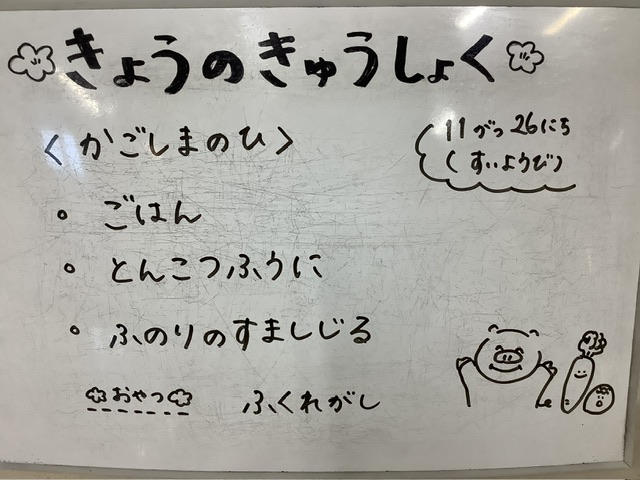 きょうのきゅうしょく
11がつ26にち
(すいようび)
<かごしまのひ>
・ごはん
・とんこつふうに
・ふのりのすましじる
おやつ ふくれがし